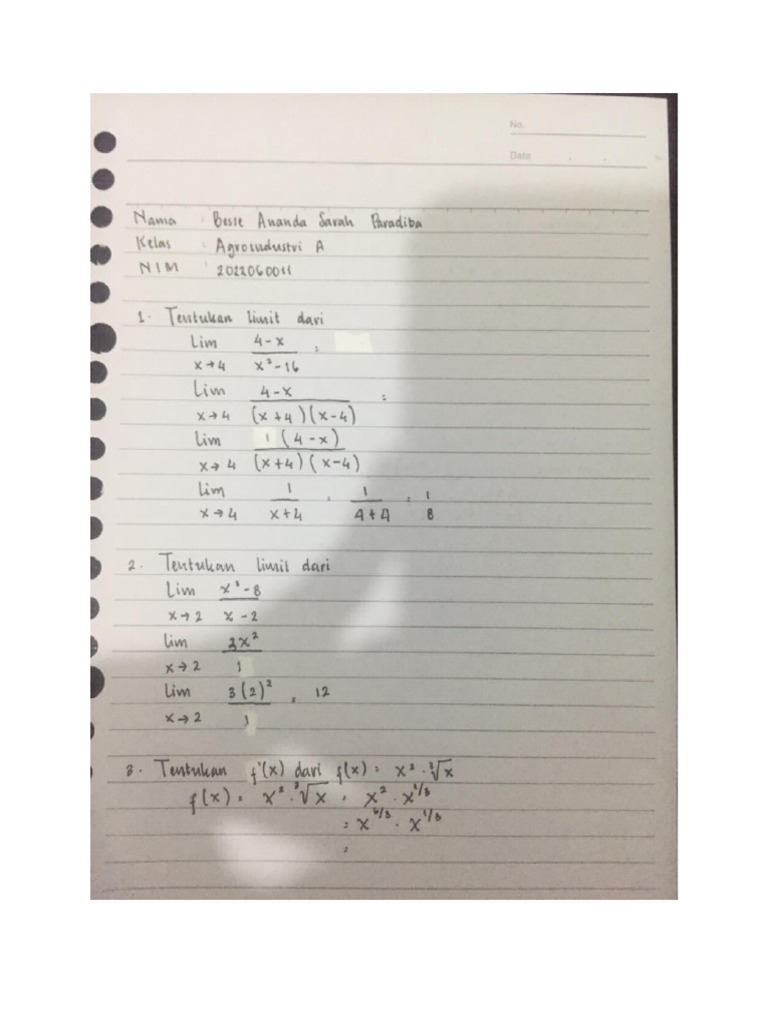 No.
Date
Nama : Besse Ananda Sarah Paradiba
Kelas : Agroindustri A
NIM : 2022060011
1. Tentukan limit dari
Lim 4-x / x²-16 =
x→4
Lim 4-x / (x+4)(x-4) =
x→4
Lim 1(4-x) / (x+4)(x-4)
x→4
Lim 1 / x+4 = 1 / 4+4 = 1 / 8
x→4
2. Tentukan limit dari
Lim x³-8 / x-2
x→2
Lim 3x² / 1
x→2
Lim 3(2)² / 1 = 12
x→2
3. Tentukan f'(x) dari f(x) = x² · ³√x
f(x) = x² · ³√x = x² · x^1/3
= x^6/3 · x^1/3
=